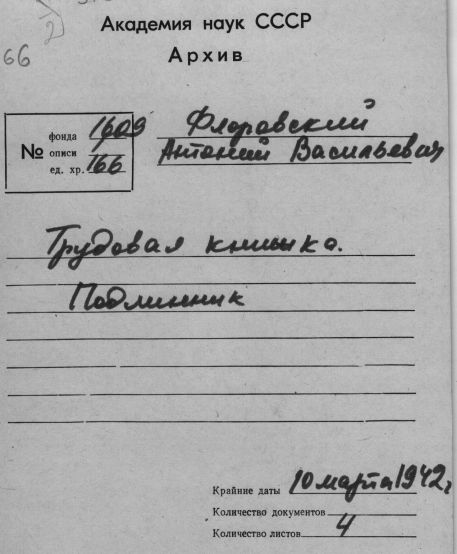 2)
66
Академия наук СССР
Архив
№
фонда 1609
описи 1
ед. хр. 166
Флоровский
Антоний Васильевич
Трудовая книжка.
Подлинник
Крайние даты 10 марта 1942 г
Количество документов
Количество листов 4